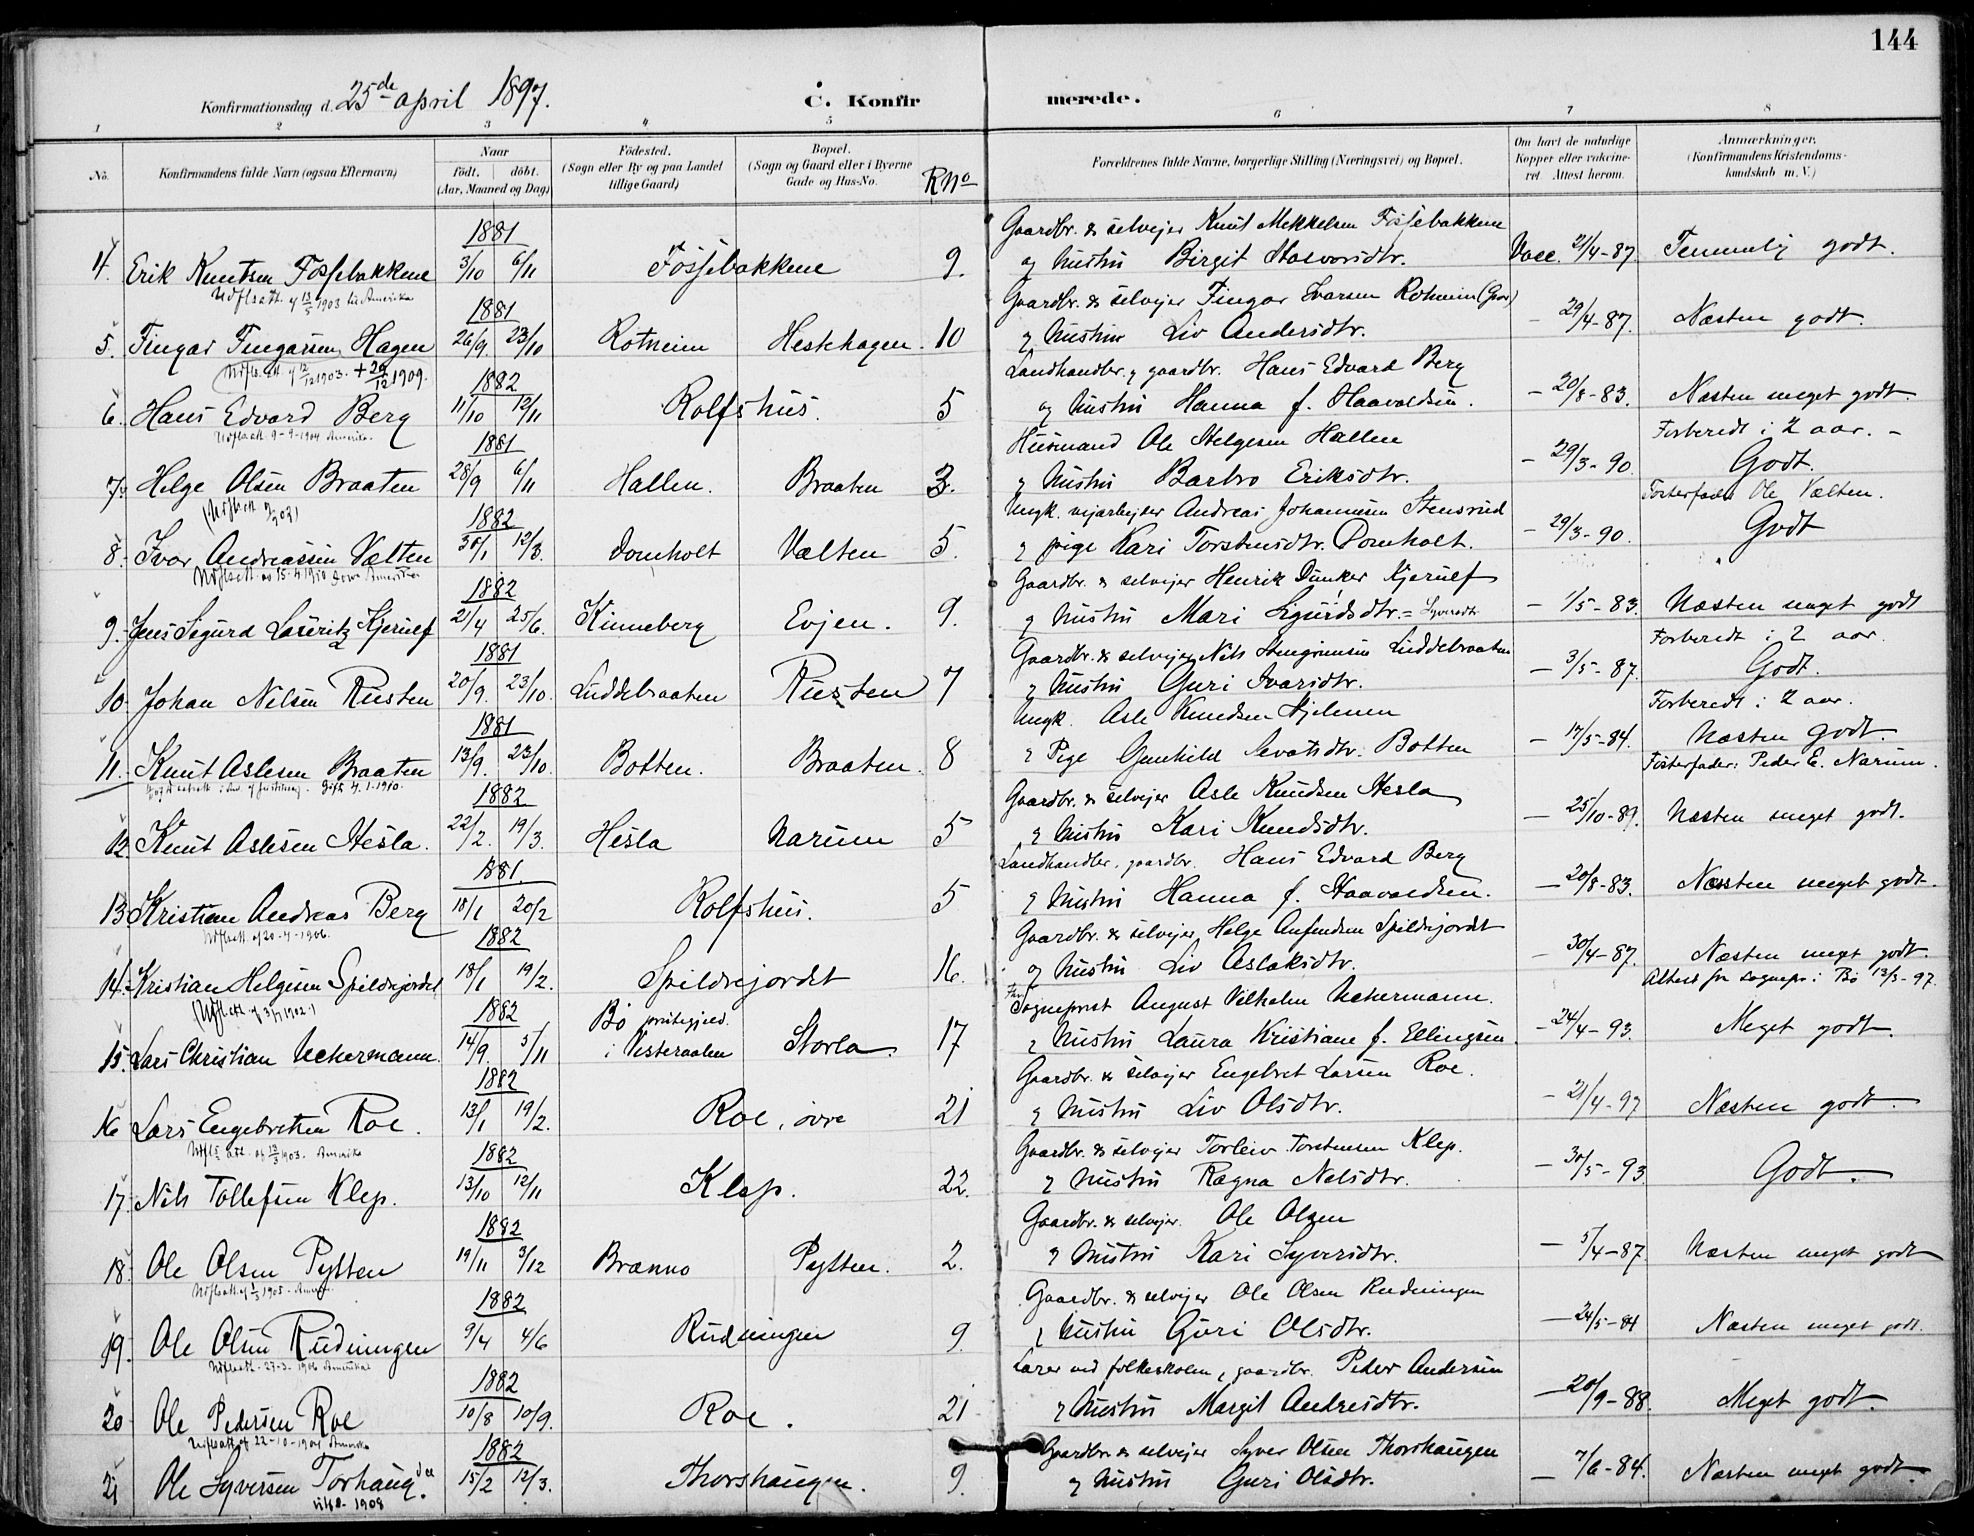 144
Konfirmationsdag d. 25de april 1897.
C. Konfirmerede.
1 2 3 4 5 6 7 8
No.
Konfirmandens fulde Navn (ogsaa Efternavn)
Naar
födt. döbt.
(Aar, Maaned og Dag)
Födested.
(Sogn eller By og paa Landet
tillige Gaard)
Bopæl.
(Sogn og Gaard eller i Byerne
Gade og Hus-No.
R No
Forældrenes fulde Navne, borgerlige Stilling (Næringsvei) og Bopæl.
Om havt de naturlige
Kopper eller vaccine-
ret Attest herom.
Anmærkninger.
(Konfirmandens Kristendoms-
kundskab m. V.)
1881
Gaardbr. & selvejer Knut Mekkelsen Fossebakkene
4. Erik Knutsen Fossebakkene 3/10 6/11 Fossebakkene 9. og hustru Birgit Halvorsdtr. Vacc. 21/4-87 Temmelig godt.
Udfl.att. af 13/5 1903 til Amerika
1881
Gaardbr. & selvejer Fingar Ivarsen Rotneim
5. Fingar Fingarsen Hagen 26/9 23/10 Rotneim Hestehagen. 10 & hustru Liv Andersdtr. - 29/4-87. Næsten godt.
Udfl. att. af 12/12 1903. + 29/12 1909.
1882
Landhandler & gaardbr. Hans Edvard Berg
6. Hans Edvard Berg 11/10 12/11 Rolfshus. 5 og hustru Hanna f. Haavaldsen. - 20/8-83. Næsten meget godt.
Udfl.att. 9-9-1904 Amerika.
Forberedt i 2 aar. -
1881
Husmand Ole Helgesen Hallen
7. Helge Olsen Braaten 28/9 6/11 Hallen. Braaten 3. & hustru Barbro Eriksdtr. - 29/3-90. Godt.
Fosterfader Ole Vælten.
1882
Ungk. vejarbejder Andreas Johannesen Stensrud
8. Ivar Andreassen Vælten 30/1 12/3. Domholt Vælten 5. & pige Kari Torstensdtr. Domholt. - 29/3-90. Godt
Udfl.att. 15-4-1910 Amerika
1882
Gaardbr. & selvejer Henrik Dunker Kjerulf
9. Jens Sigurd Lauritz Kjerulf 21/4 25/6. Kinneberg Evjen. 9. & hustru Mari Sigurdsdtr. - 1/5-83. Næsten meget godt
Forberedt i 2 aar.
1881
Gaardbr. & selvejer Nils Stengrimsen Luddebraaten
10. Johan Nilsen Rusten 20/9. 23/10. Luddebraaten Rusten 7 & hustru Guri Ivarsdtr. - 3/5-87. Godt.
Forberedt i 2 aar.
1881
Ungk. Asle Knudsen Hjelmen
11. Knut Aslesen Braaten 13/9. 23/10. Botten. Braaten. 8 & Pige Gunhild Sevatsdtr. Botten - 17/5-84. Næsten godt.
Gift 4.1.1910.
Fosterfader: Peder E. Narum.
1882
Gaardbr. & selvejer Asle Knudsen Hesla
12. Knut Aslesen Hesla. 22/2. 19/3. Hesla Narum 5 & hustru Kari Knudsdtr. - 25/10-89. Næsten meget godt.
1881.
Landhandler, gaardbr. Hans Edvard Berg
13. Kristian Andreas Berg 18/1 20/2 Rolfshus. 5 & hustru Hanna f. Haavaldsen. - 20/8-83. Næsten meget godt.
Udfl.att. af 20-4-1906.
1882
Gaardbr. & selvejer Helge Anfindsen Spildrejordet
14. Kristian Helgesen Spildrejordet 18/1 19/2. Spildrejordet 16. og hustru Liv Aslaksdtr. - 30/4-87. Næsten meget godt.
Attest fra sognepr. i Bö 13/3-97.
1882
Bö prestegjeld.
Sogneprest August Vilhelm Uchermann.
15. Lars Christian Uchermann. 14/9. 5/11 i Vesteraalen Storla. 17 & hustru Laura Kristiane f. Ellingsen. - 24/4-93. Meget godt.
1882
Gaardbr. & selvejer Engebret Larsen Roe.
16 Lars Engebretsen Roe. 13/1 19/2. Roe, övre 21 & hustru Liv Olsdtr. - 21/4-97 Næsten godt.
Udfl. att. af 13/3 1903. Amerika
1882
Gaardbr. & selvejer Torleiv Torstensen Klep.
17. Nils Tollefsen Klep. 13/10 12/11 Klep. 22. & hustru Ragna Nelsdtr. - 30/5-93 Godt.
1882
Gaardbr. & selvejer. Ole Olsen
18. Ole Olsen Pytten 19/11 3/12 Brænno Pytten. 2. & hustru Kari Syversdtr. - 5/4-87. Næsten meget godt
1882
Gaardbr. & selvejer Ole Olsen Rudningen
19. Ole Olsen Rudningen 9/4 4/6 Rudningen 9. & hustru Guri Olsdtr. - 24/5-84 Næsten meget godt.
Udfl.att. 27-3-1906 Amerika
1882
Lærer ved folkeskolen, gaardbr. Peder Andersen
20 Ole Pedersen Roe 10/8 10/9. Roe. 21 & hustru Margit Andresdtr. - 20/9-88. Meget godt.
Udfl.att. af 22-10-1904 Amerika
1882
Gaardbr. & selvejer Syver Olsen Thorshaugen
21 Ole Syversen Torhaug. 15/2 12/3. Thorshaugen. 9. & hustru Guri Olsdtr. - 7/6-84. Næsten meget godt.
1908